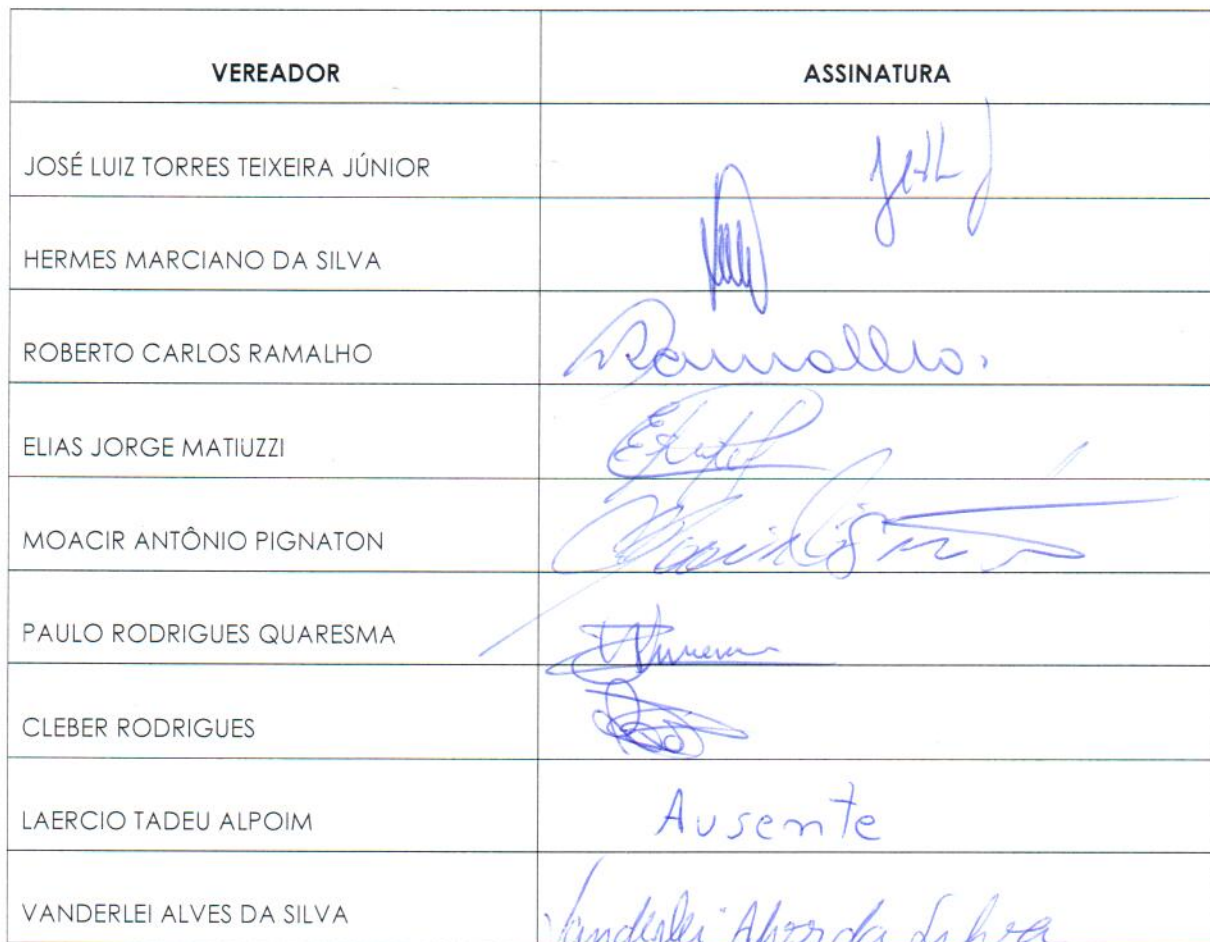 VEREADOR ASSINATURA
JOSÉ LUIZ TORRES TEIXEIRA JÚNIOR
HERMES MARCIANO DA SILVA
ROBERTO CARLOS RAMALHO Ramalho.
ELIAS JORGE MATIUZZI
MOACIR ANTÔNIO PIGNATON
PAULO RODRIGUES QUARESMA
CLEBER RODRIGUES
LAERCIO TADEU ALPOIM Ausente
VANDERLEI ALVES DA SILVA Vanderlei Alves da Silva